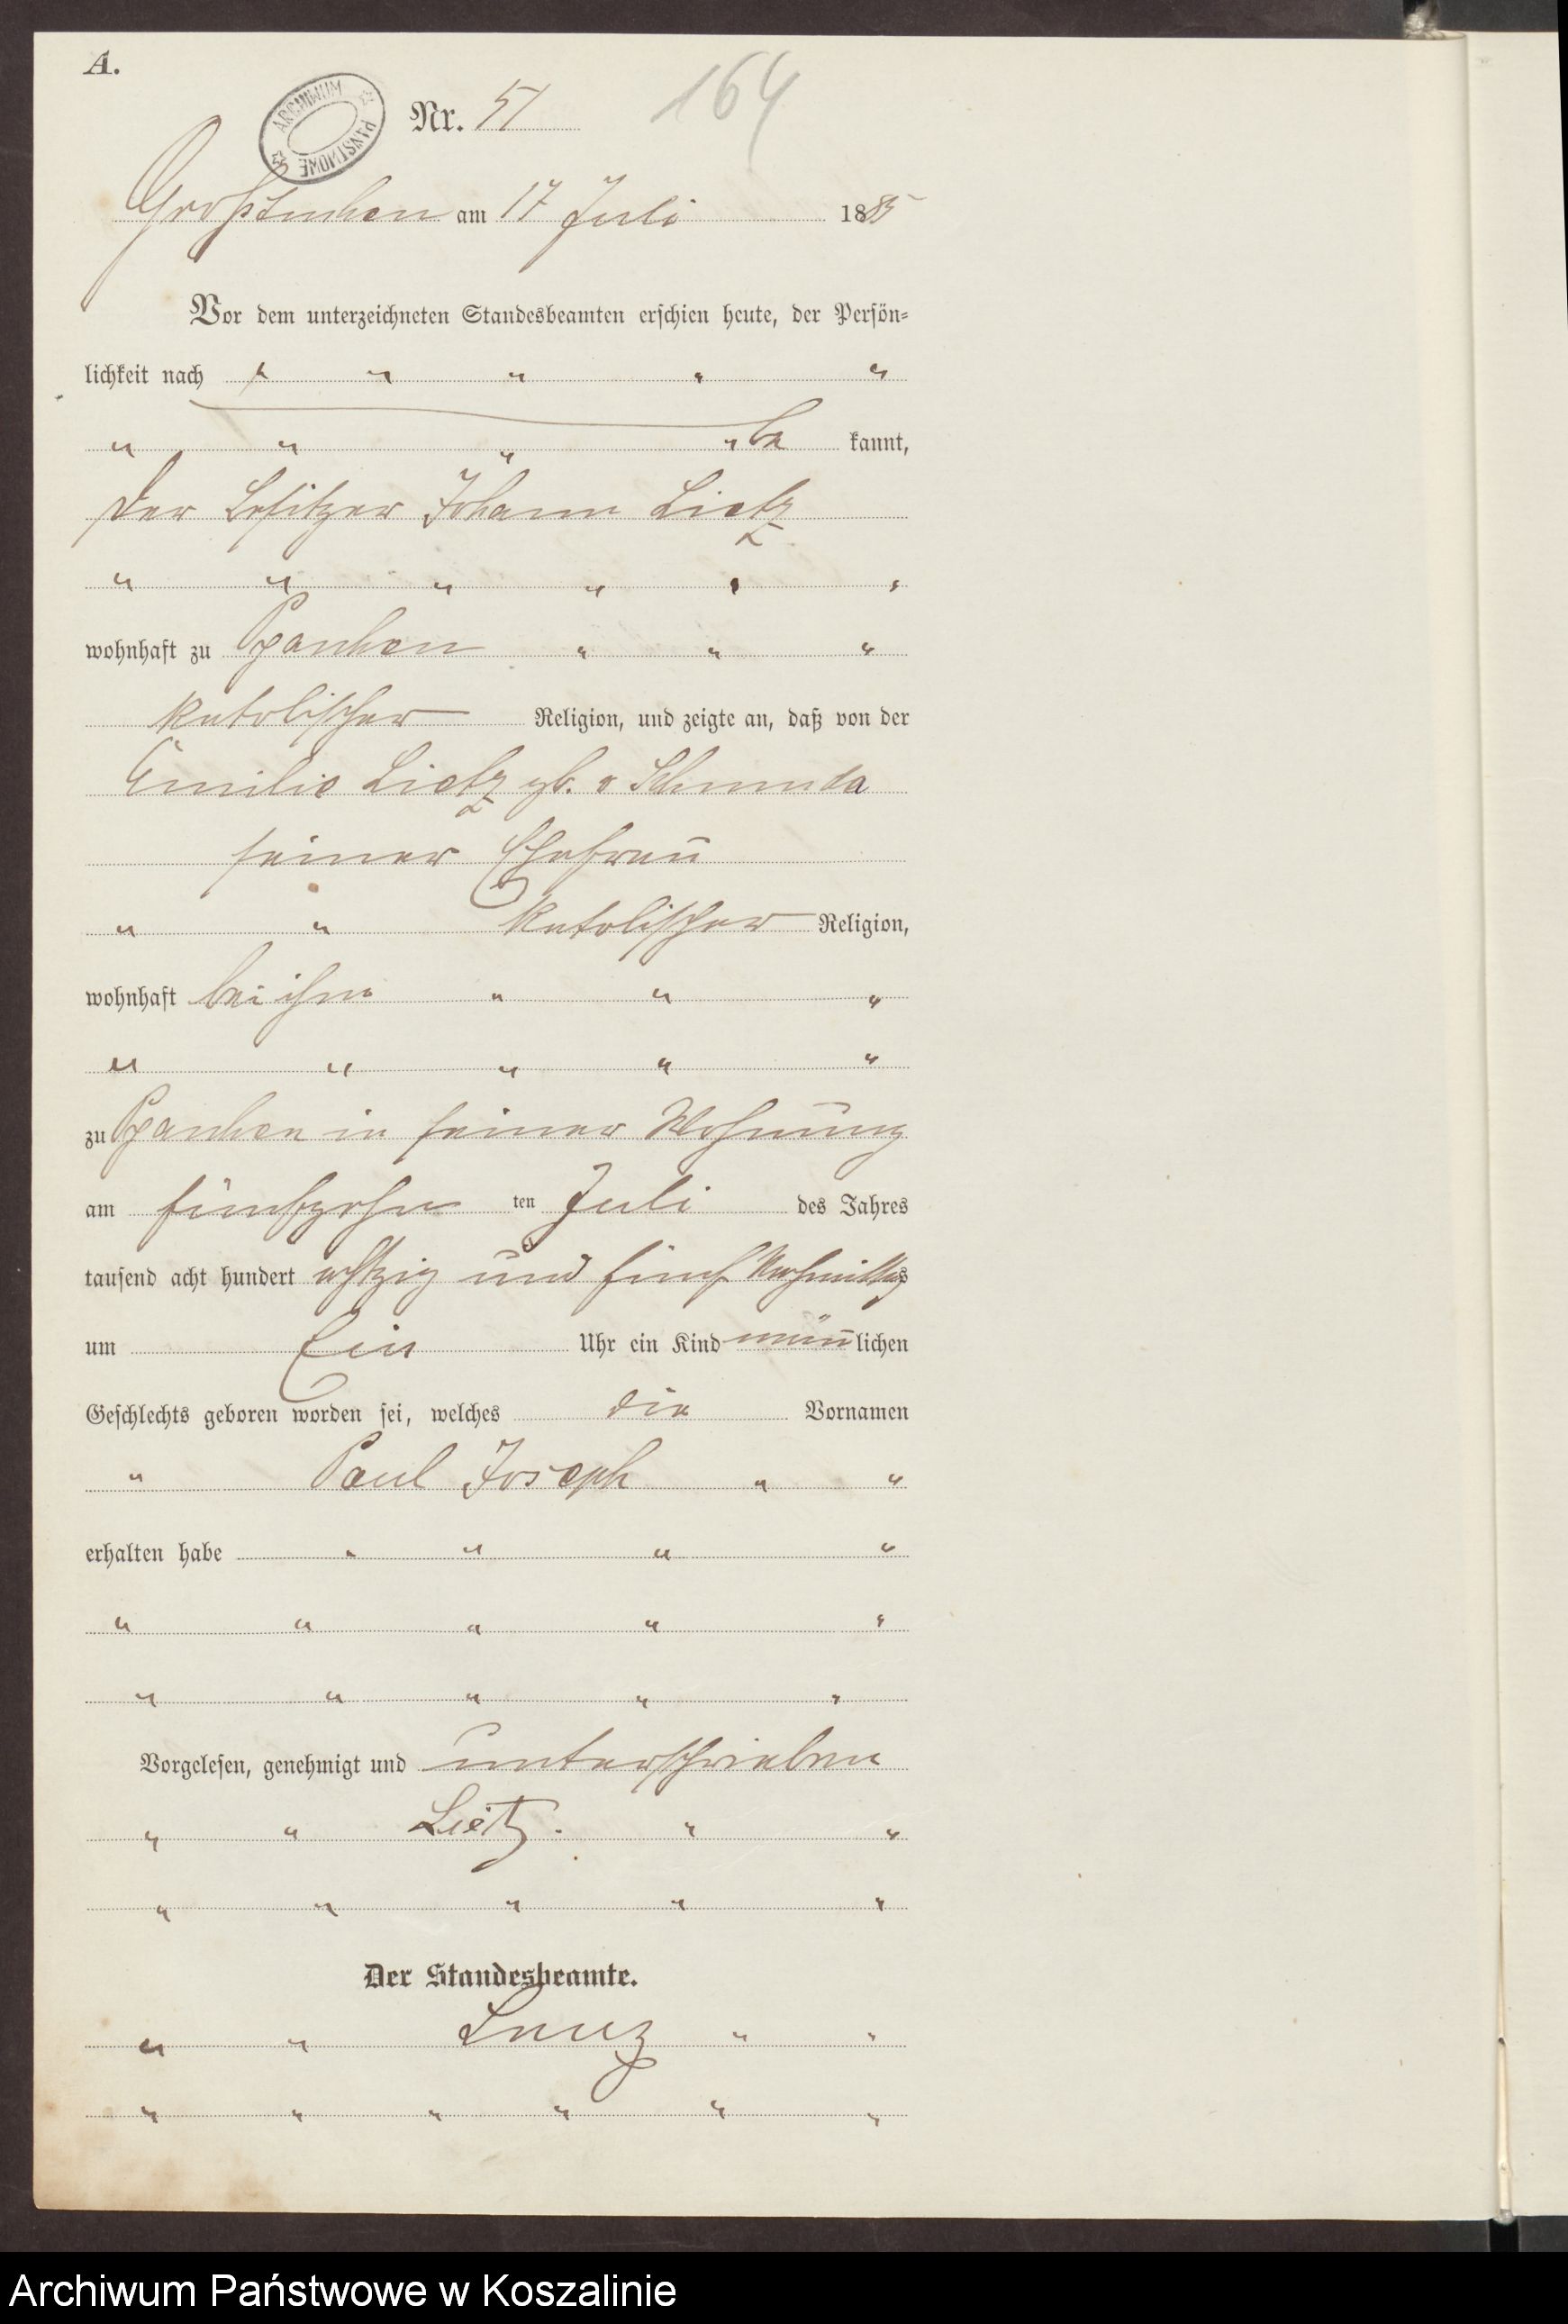 A.
ARCHIWUM PAŃSTWOWE
Nr. 51
164
Großtuchen am 17 Juli 1885
Vor dem unterzeichneten Standesbeamten erschien heute, der Persön-
lichkeit nach " " " " "
" " " " be kannt,
der Besitzer Johann Lietz
" " " " " "
wohnhaft zu " " "
katolischer Religion, und zeigte an, daß von der
Emilie Lietz geb. v
seiner Ehefrau
" " katolischer Religion,
wohnhaft bei ihm " " "
" " " " "
zu in seiner Wohnung
am fünfzehn ten Juli des Jahres
tausend acht hundert achtzig und fünf Nachmittags
um Ein Uhr ein Kind männlichen
Geschlechts geboren worden sei, welches die Vornamen
" Paul Joseph " "
erhalten habe " " " "
" " " " "
" " " " "
Vorgelesen, genehmigt und unterschrieben
" " Lietz. " "
" " " " "
Der Standesbeamte.
" " " "
" " " " " "
Archiwum Państwowe w Koszalinie